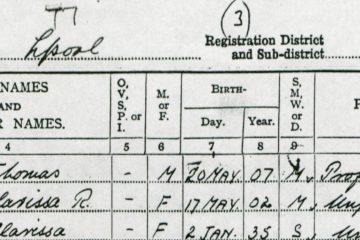 (3)
Lpool Registration District
and Sub-district
NAMES O, M. BIRTH- S,
AND V, or M,
R NAMES. S, F. Day. Year. W,
P. or or
I. D.
4 5 6 7 8 9
Thomas - M 20 MAY 07 M
Clarissa R. - F 17 MAY 02 M
Clarissa - F 2 JAN. 35 S